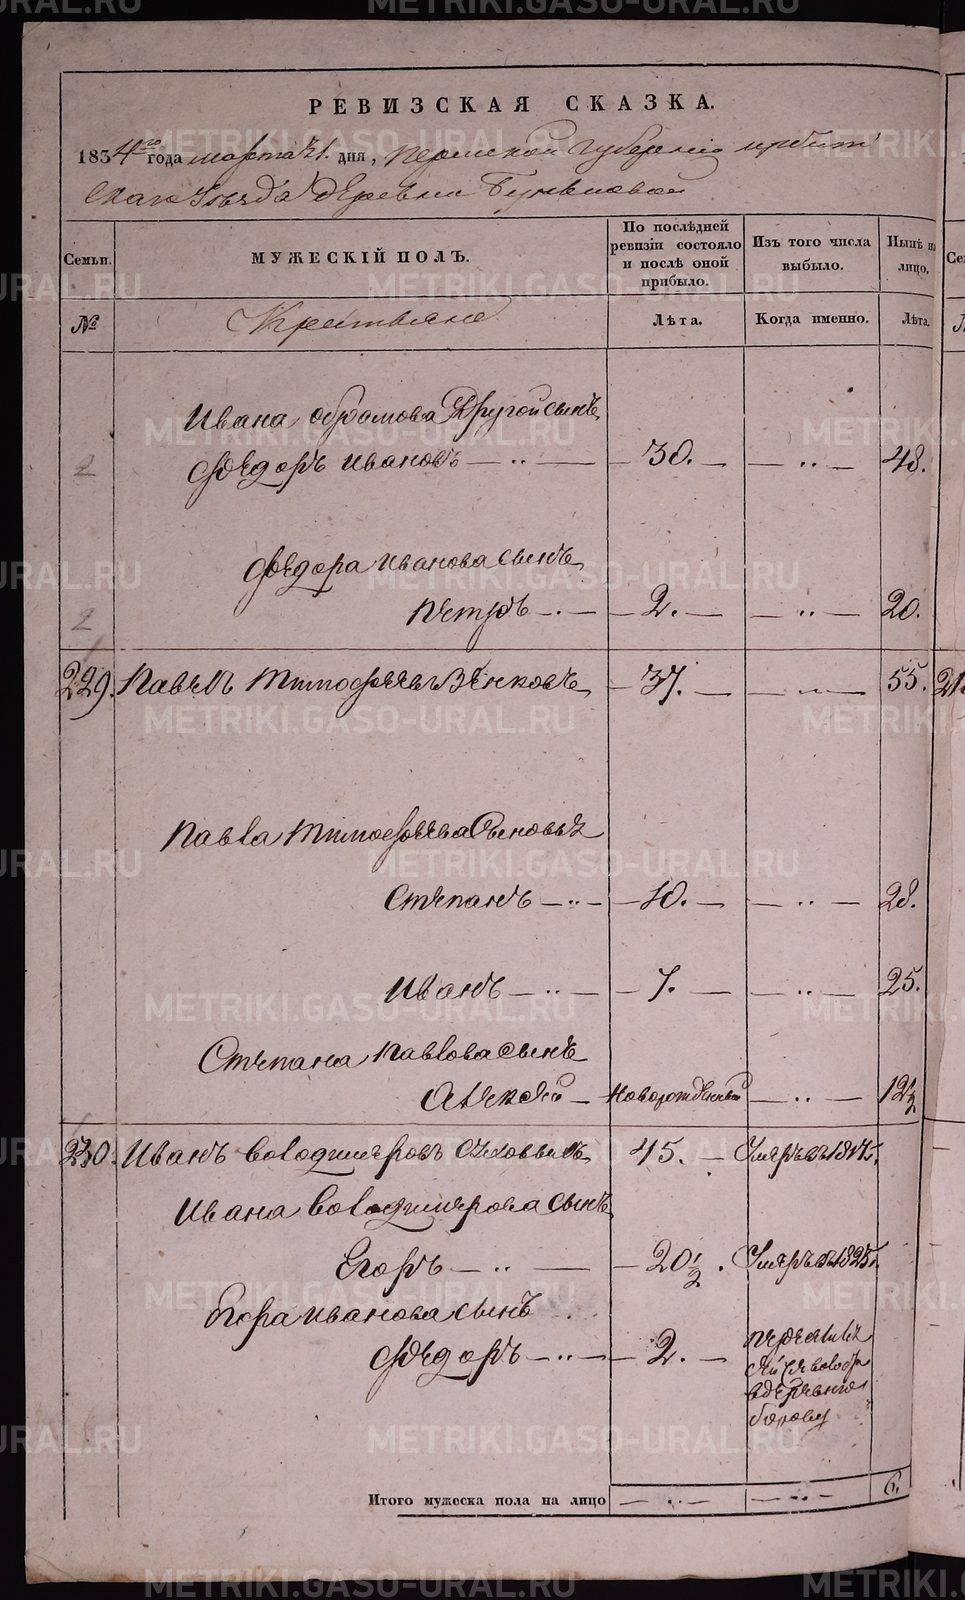 РЕВИЗСКАЯ СКАЗКА.
1834го года марта 21. дня, Пермской губернии Ирбит
скаго уезда деревни
Семьи. МУЖЕСКІЙ ПОЛЪ. По послѣдней ревизіи состояло и послѣ оной прибыло. Изъ того числа выбыло. Нынѣ на лицо.
№ Крестьяне Лѣта. Когда именно. Лѣта.
Ивана Обрамова Другой сынъ
2 Федоръ Ивановъ — " — 30. — — " — 48.
Федора Иванова сынъ
2 Петръ — " — 2. — — " — 20.
229. Павелъ Тимофеевъ Зенковъ — 37. — — " — 55.
Павла Тимофеева Сыновья
Степанъ — " — 10. — — " — 28.
Иванъ — " — 7. — — " — 25.
Степана Павлова сынъ
Алексей — Новорожденный — " — 12½
230. Иванъ Володимеровъ 45. — Умеръ въ
Ивана Володимерова сынъ
Егоръ — " — 20½. Умеръ въ 1825г.
Егора Иванова сынъ
Федоръ — " — 2. —
в деревню
Итого мужеска пола на лицо — " — — " — 6.
METRIKI.GASO-URAL.RU